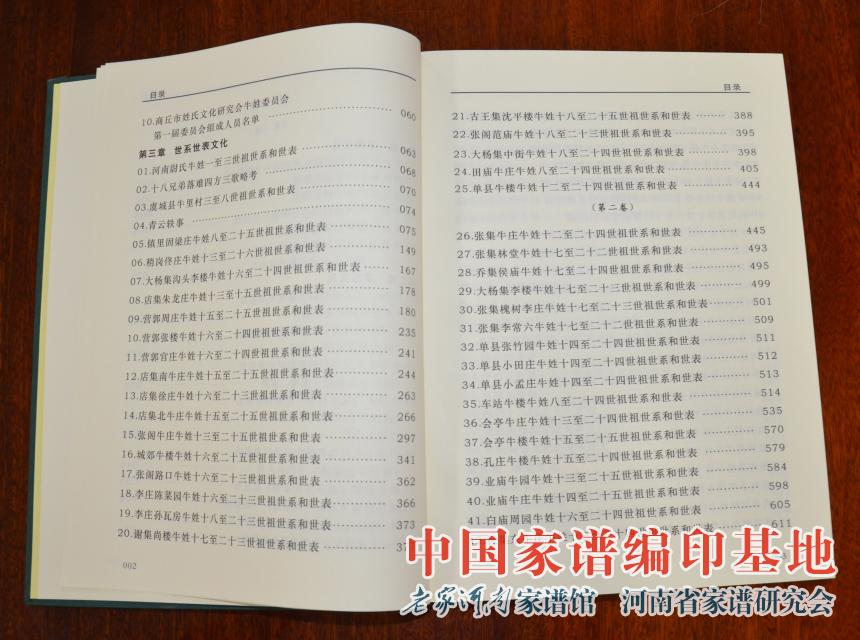 目录
10.商丘市姓氏文化研究会牛姓委员会
第一届委员会组成人员名单 ………… 060
第三章 世系世表文化
01.河南尉氏牛姓一至三世祖世系和世表 ………… 063
02.十八兄弟落难四方三歌略考 ………… 068
03.虞城县牛里村三至八世祖世系和世表 ………… 070
04.青云轶事 ………… 074
05.镇里固梁庄牛姓八至二十五世祖世系和世表 ………… 075
06.稍岗佟庄牛姓十二至二十六世祖世系和世表 ………… 149
07.大杨集沟头李楼牛姓十六至二十四世祖世系和世表 ………… 167
08.店集朱龙庄牛姓十三至十五世祖世系和世表 ………… 178
09.营郭周庄牛姓十五至二十五世祖世系和世表 ………… 180
10.营郭张楼牛姓十六至二十四世祖世系和世表 ………… 235
11.营郭官庄牛姓十六至二十四世祖世系和世表 ………… 241
12.店集南牛庄牛姓十五至二十五世祖世系和世表 ………… 244
13.店集徐庄牛姓十六至二十三世祖世系和世表 ………… 263
14.店集北牛庄牛姓十五至二十五世祖世系和世表 ………… 266
15.张阁牛庄牛姓十三至二十五世祖世系和世表 ………… 297
16.城郊牛楼牛姓十六至二十五世祖世系和世表 ………… 341
17.张阁路口牛姓十六至二十三世祖世系和世表 ………… 362
18.李庄陈菜园牛姓十六至二十三世祖世系和世表 ………… 366
19.李庄孙瓦房牛姓十八至二十三世祖世系和世表 ………… 373
20.谢集尚楼牛姓十七至二十三世祖世系和世表 …………
002
目录
21.古王集沈平楼牛姓十八至二十五世祖世系和世表 ………… 388
22.张阁范庙牛姓十八至二十三世祖世系和世表 ………… 395
23.大杨集中街牛姓十八至二十四世祖世系和世表 ………… 398
24.田庙牛庄牛姓八至二十四世祖世系和世表 ………… 405
25.单县牛楼牛姓十二至二十四世祖世系和世表 ………… 444
(第二卷)
26.张集牛庄牛姓十二至二十四世祖世系和世表 ………… 445
27.张集林堂牛姓十七至二十二世祖世系和世表 ………… 493
28.乔集侯庙牛姓十七至二十四世祖世系和世表 ………… 495
29.大杨集李楼牛姓十七至二十三世祖世系和世表 ………… 499
30.张集槐树李庄牛姓十七至二十三世祖世系和世表 ………… 501
31.张集李常六牛姓十七至二十二世祖世系和世表 ………… 509
32.单县张竹园牛姓十四至二十四世祖世系和世表 ………… 511
33.单县小田庄牛姓十四至二十四世祖世系和世表 ………… 512
34.单县小孟庄牛姓十四至二十四世祖世系和世表 ………… 513
35.车站牛楼牛姓八至二十四世祖世系和世表 ………… 514
36.会亭牛庄牛姓十三至二十四世祖世系和世表 ………… 535
37.会亭牛楼牛姓十五至二十五世祖世系和世表 ………… 570
38.孔庄牛楼牛姓十五至二十四世祖世系和世表 ………… 579
39.业庙牛园牛姓十三至二十五世祖世系和世表 ………… 584
40.业庙牛庄牛姓十四至二十五世祖世系和世表 ………… 598
41.白庙周园牛姓十六至二十四世祖世系和世表 ………… 605
世祖世系和世表 ………… 611
中国家谱编印基地
老家河南家谱馆 河南省家谱研究会